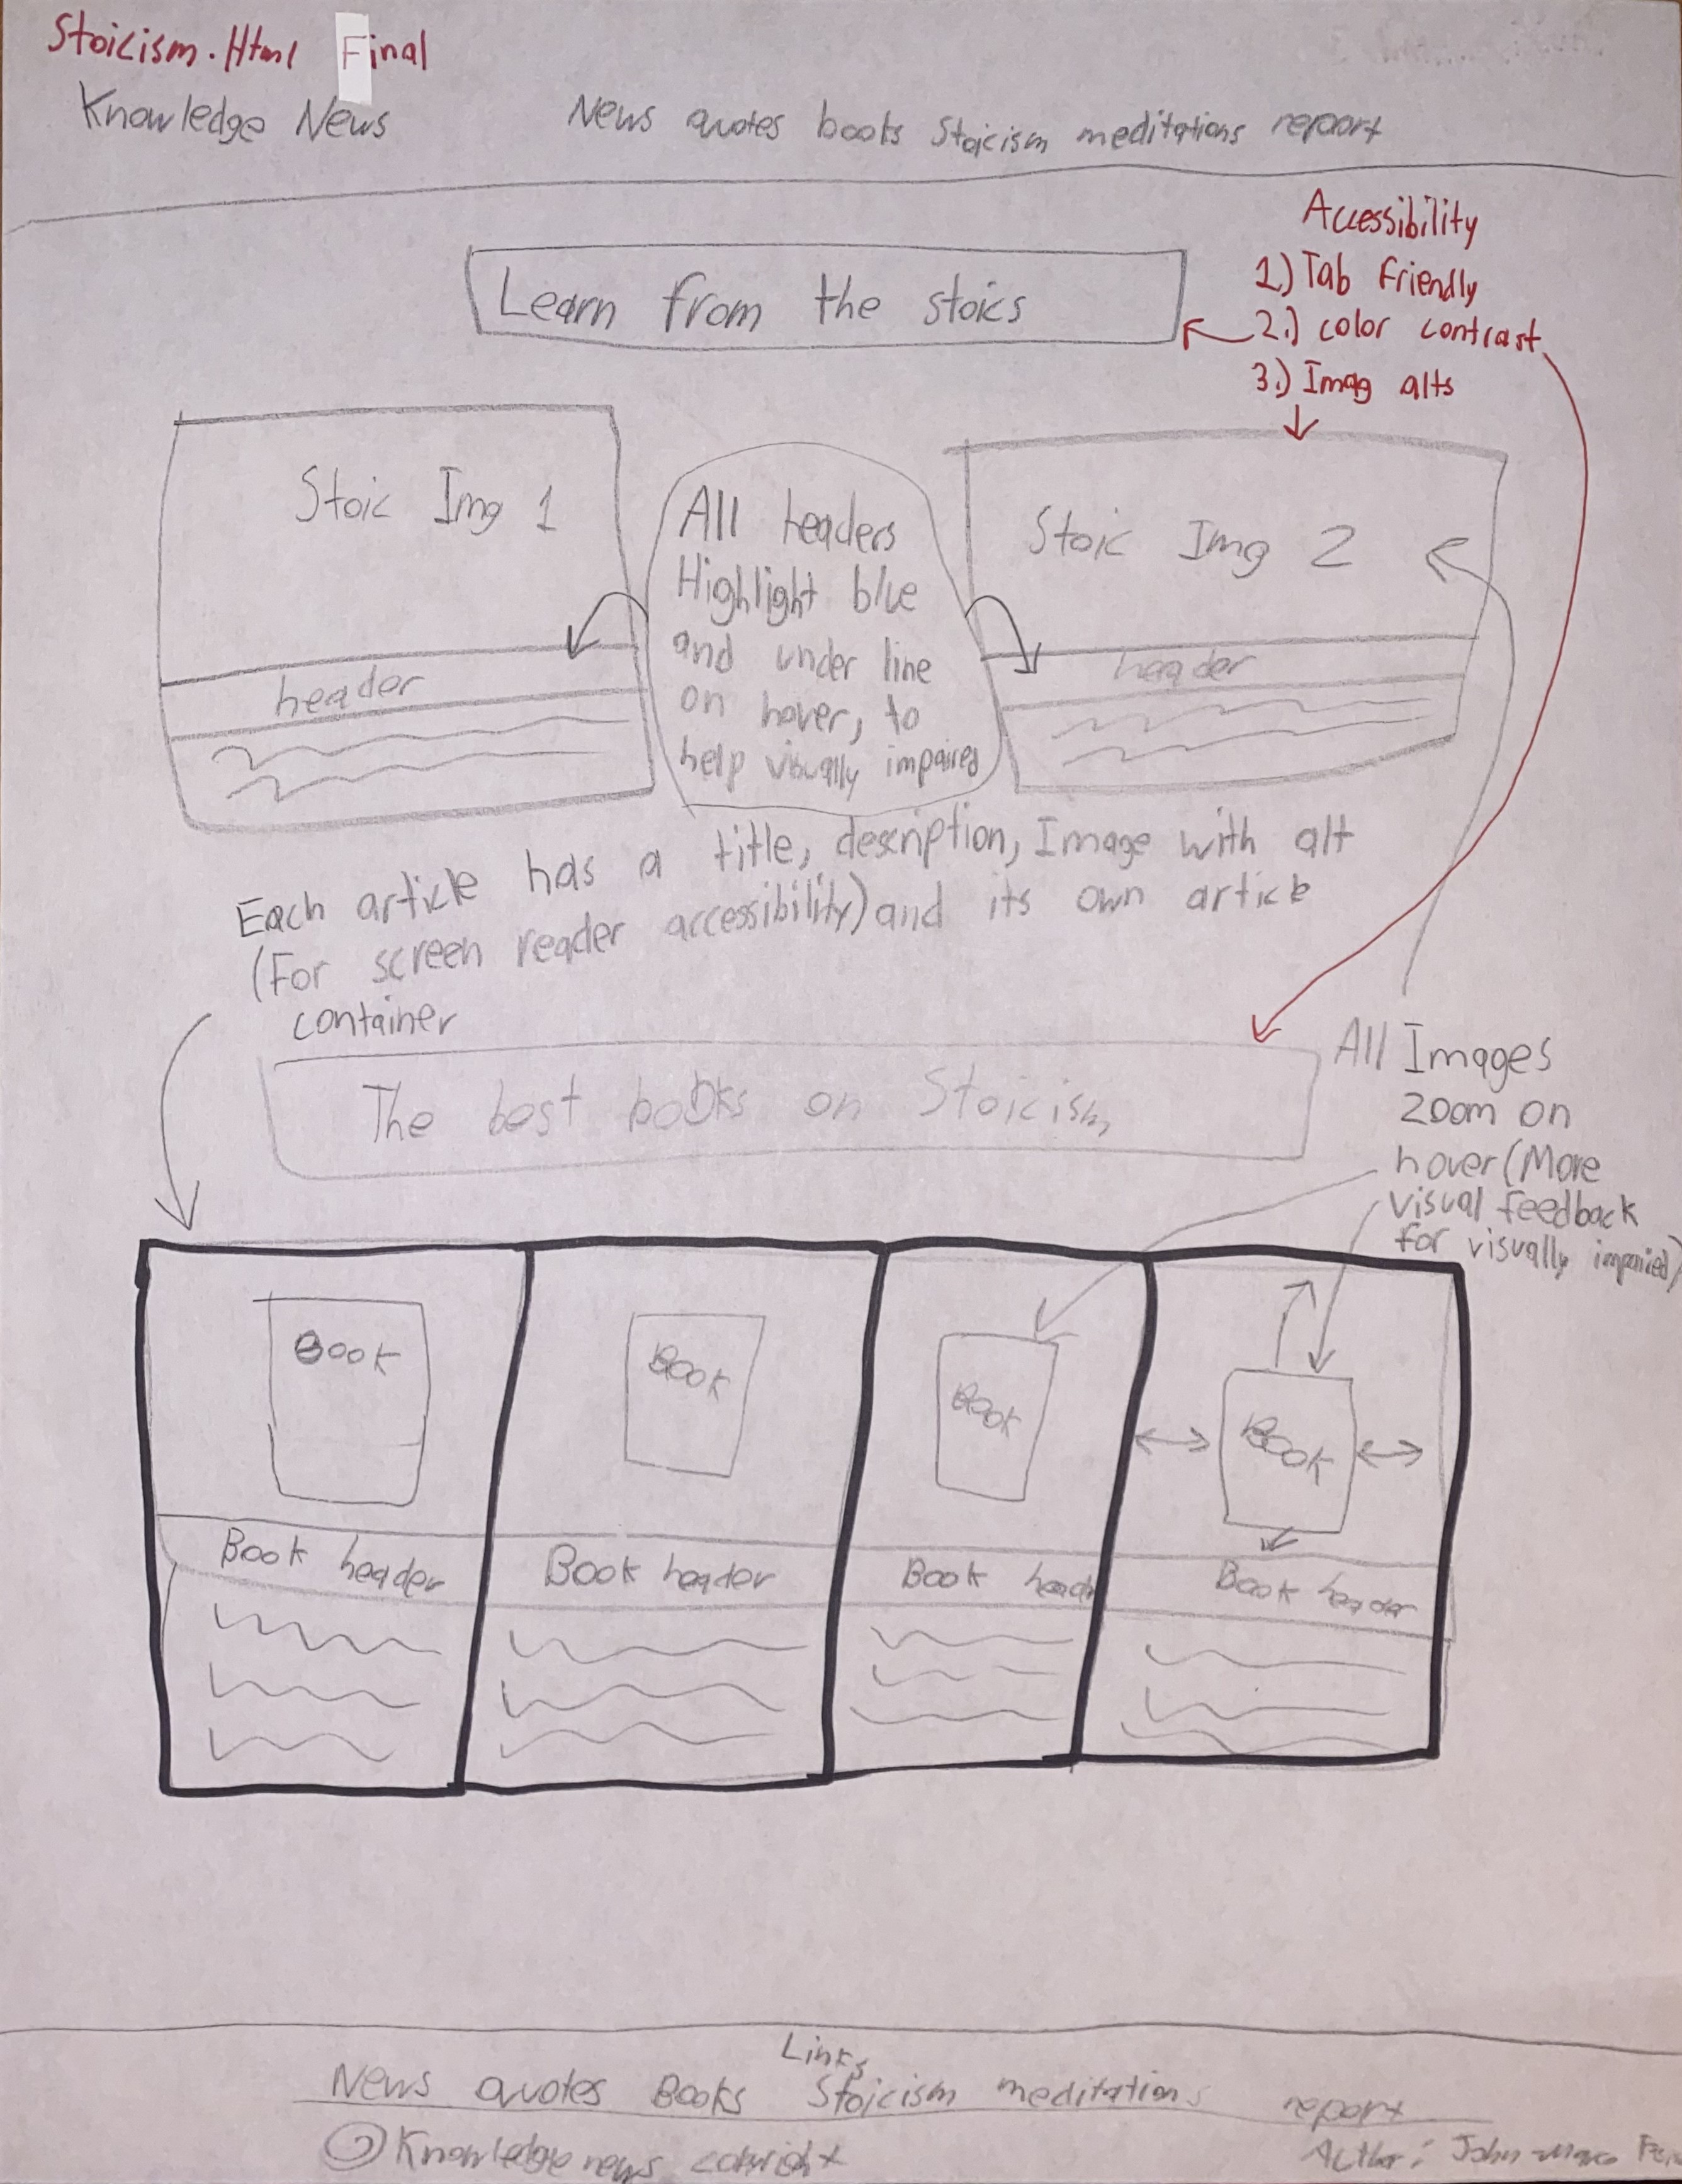 Stoicism.Html Final
Knowledge News
News quotes books Stoicism meditations report
Accessibility
1.) Tab friendly
2.) color contrast
3.) Imag alts
Learn from the stoics
Stoic Img 1
header
All headers
Highlight blue
and under line
on hover, to
help visually impaired
Stoic Img 2
header
Each article has a title, description, Image with alt
(For screen reader accessibility) and its own article
container
The best books on Stoicism
All Images
zoom on
hover (More
visual feedback
for visually imparied)
Book
Book
Book
Book
Book header
Book header
Book heade
Book header
Links
News quotes Books Stoicism meditations report
Knowledge news
Author: John-Marco